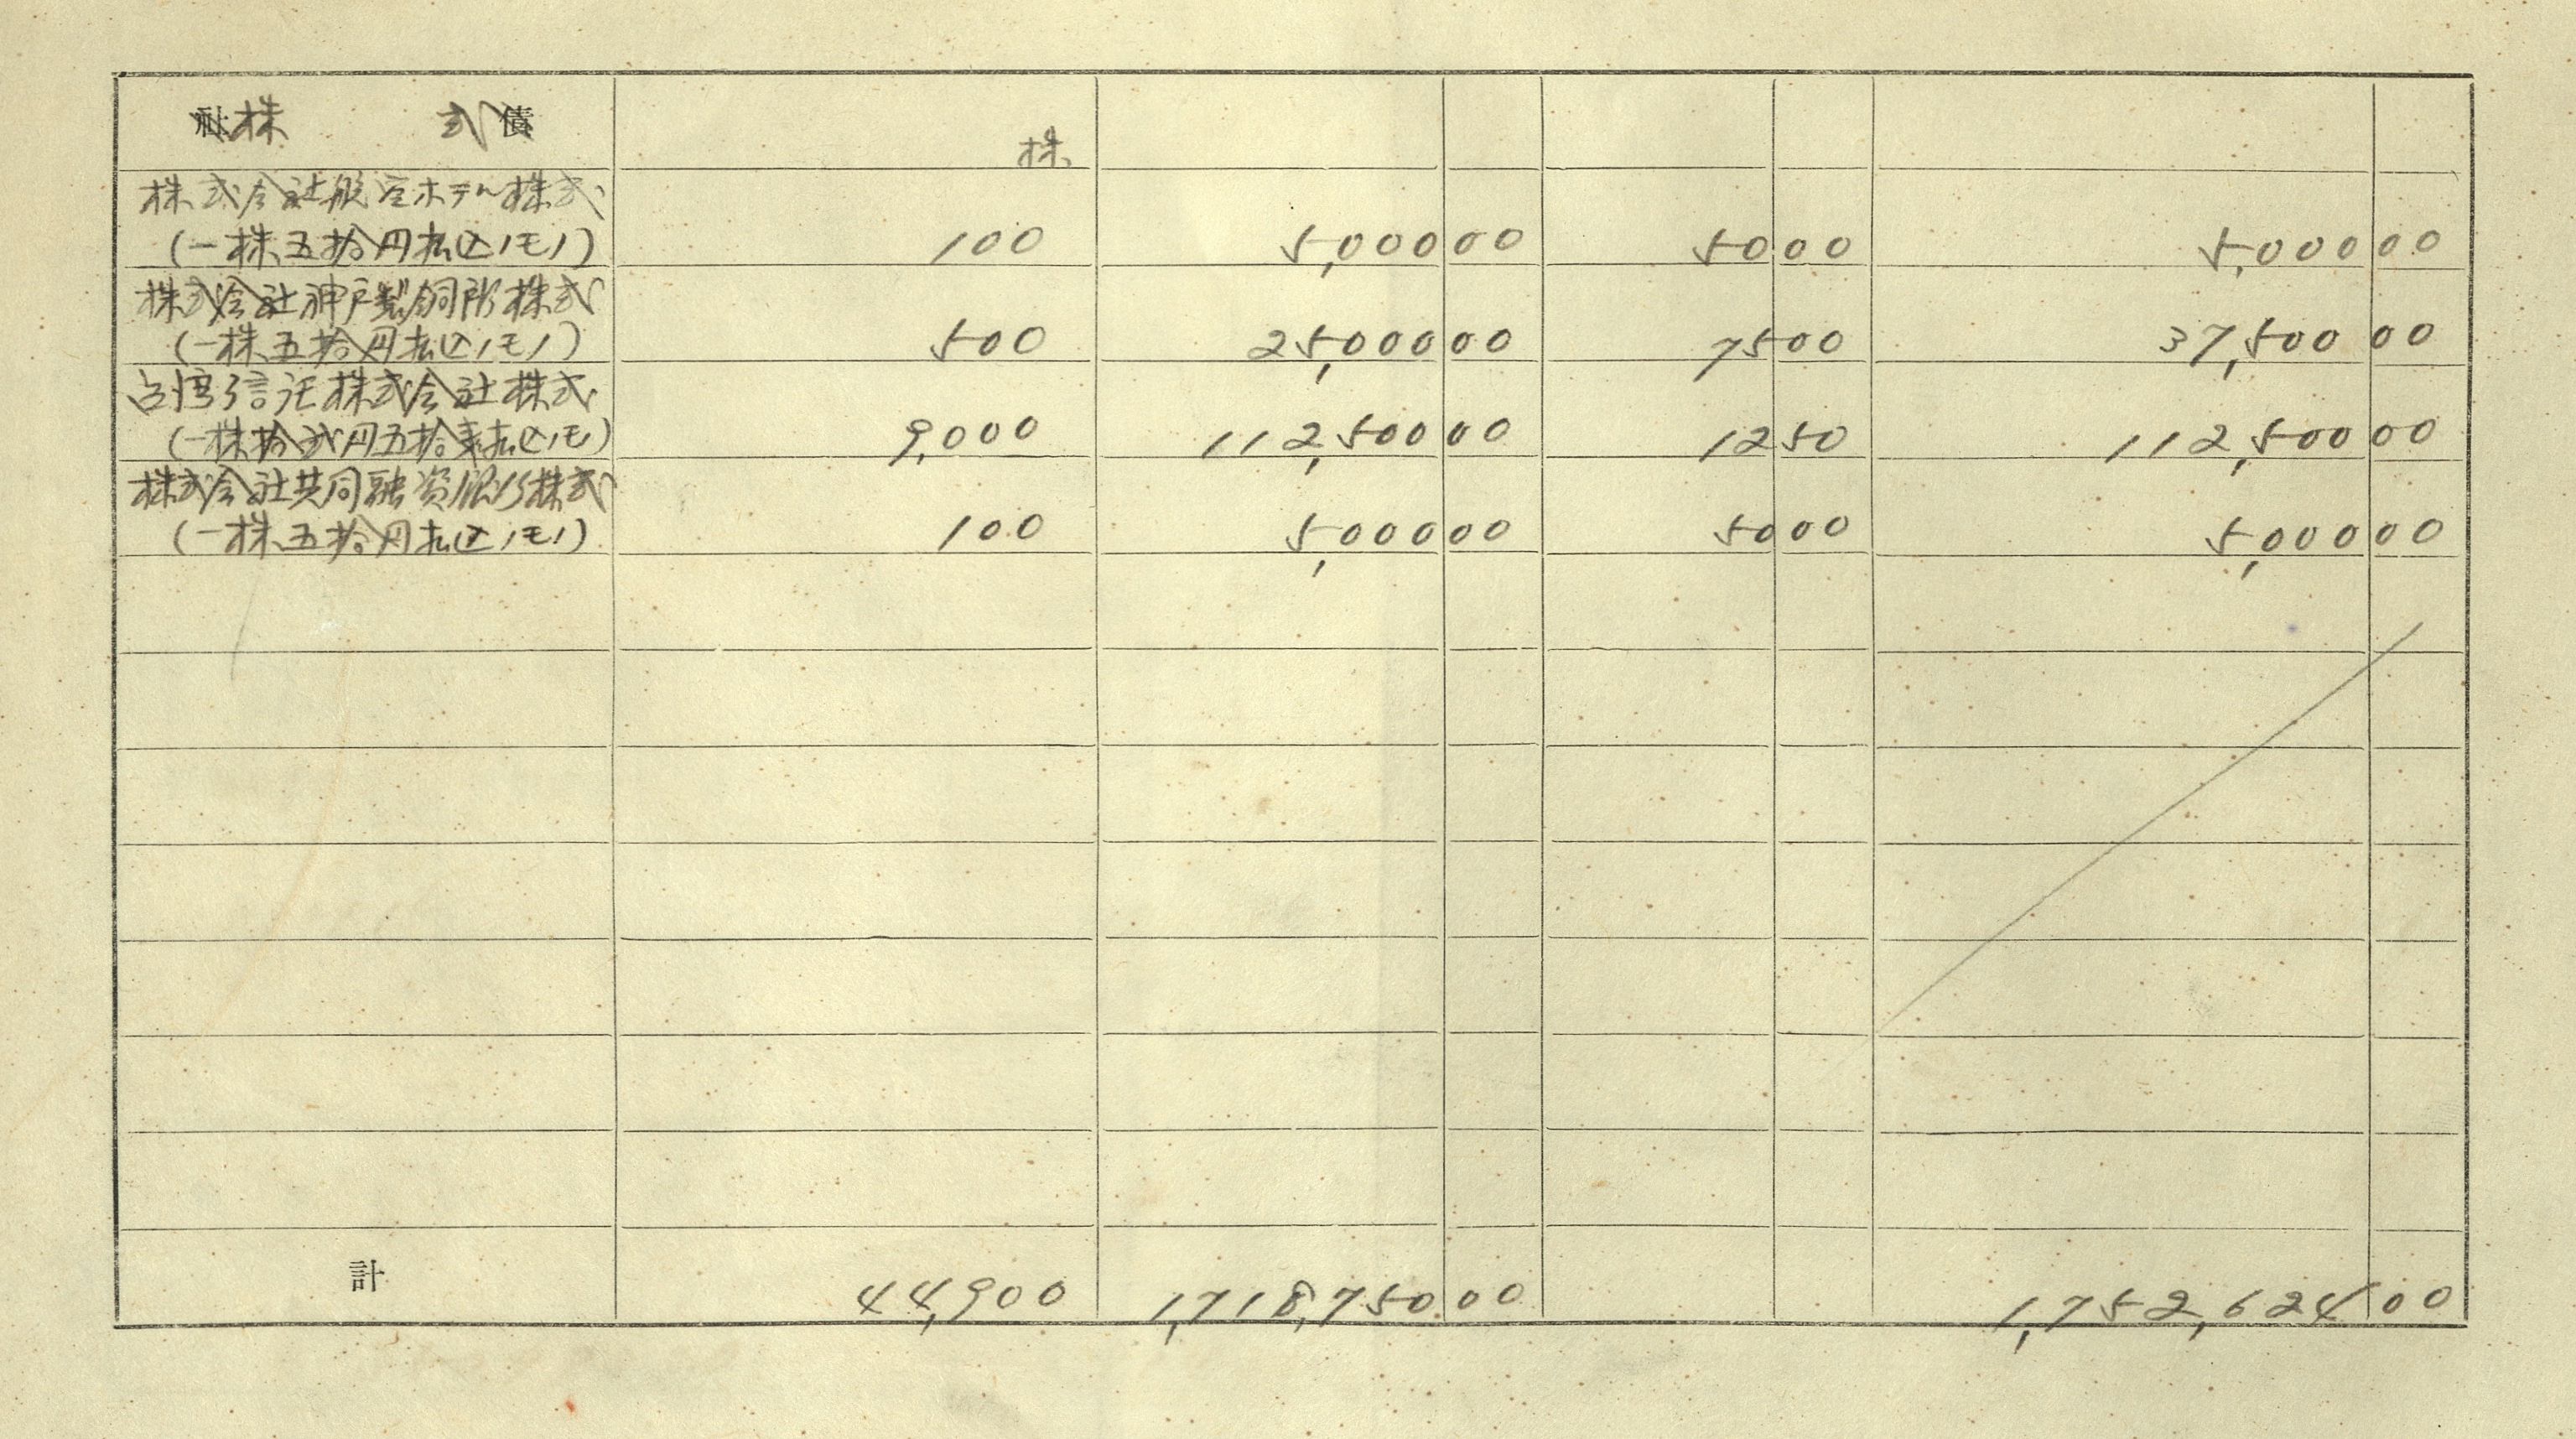 株式
株
株式会社航空ホテル株式
(一株五拾円払込ノモノ) 100 5,000 00 50 00 5,000 00
株式会社神戸製鋼所株式
(一株五拾円払込ノモノ) 500 25,000 00 75 00 37,500 00
台湾信託株式会社株式
(一株拾弐円五拾銭払込ノモノ) 9,000 112,500 00 12 50 112,500 00
株式会社共同融資銀行株式
(一株五拾円払込ノモノ) 100 5,000 00 50 00 5,000 00
計 44,900 1,718,750 00 1,752,624 00